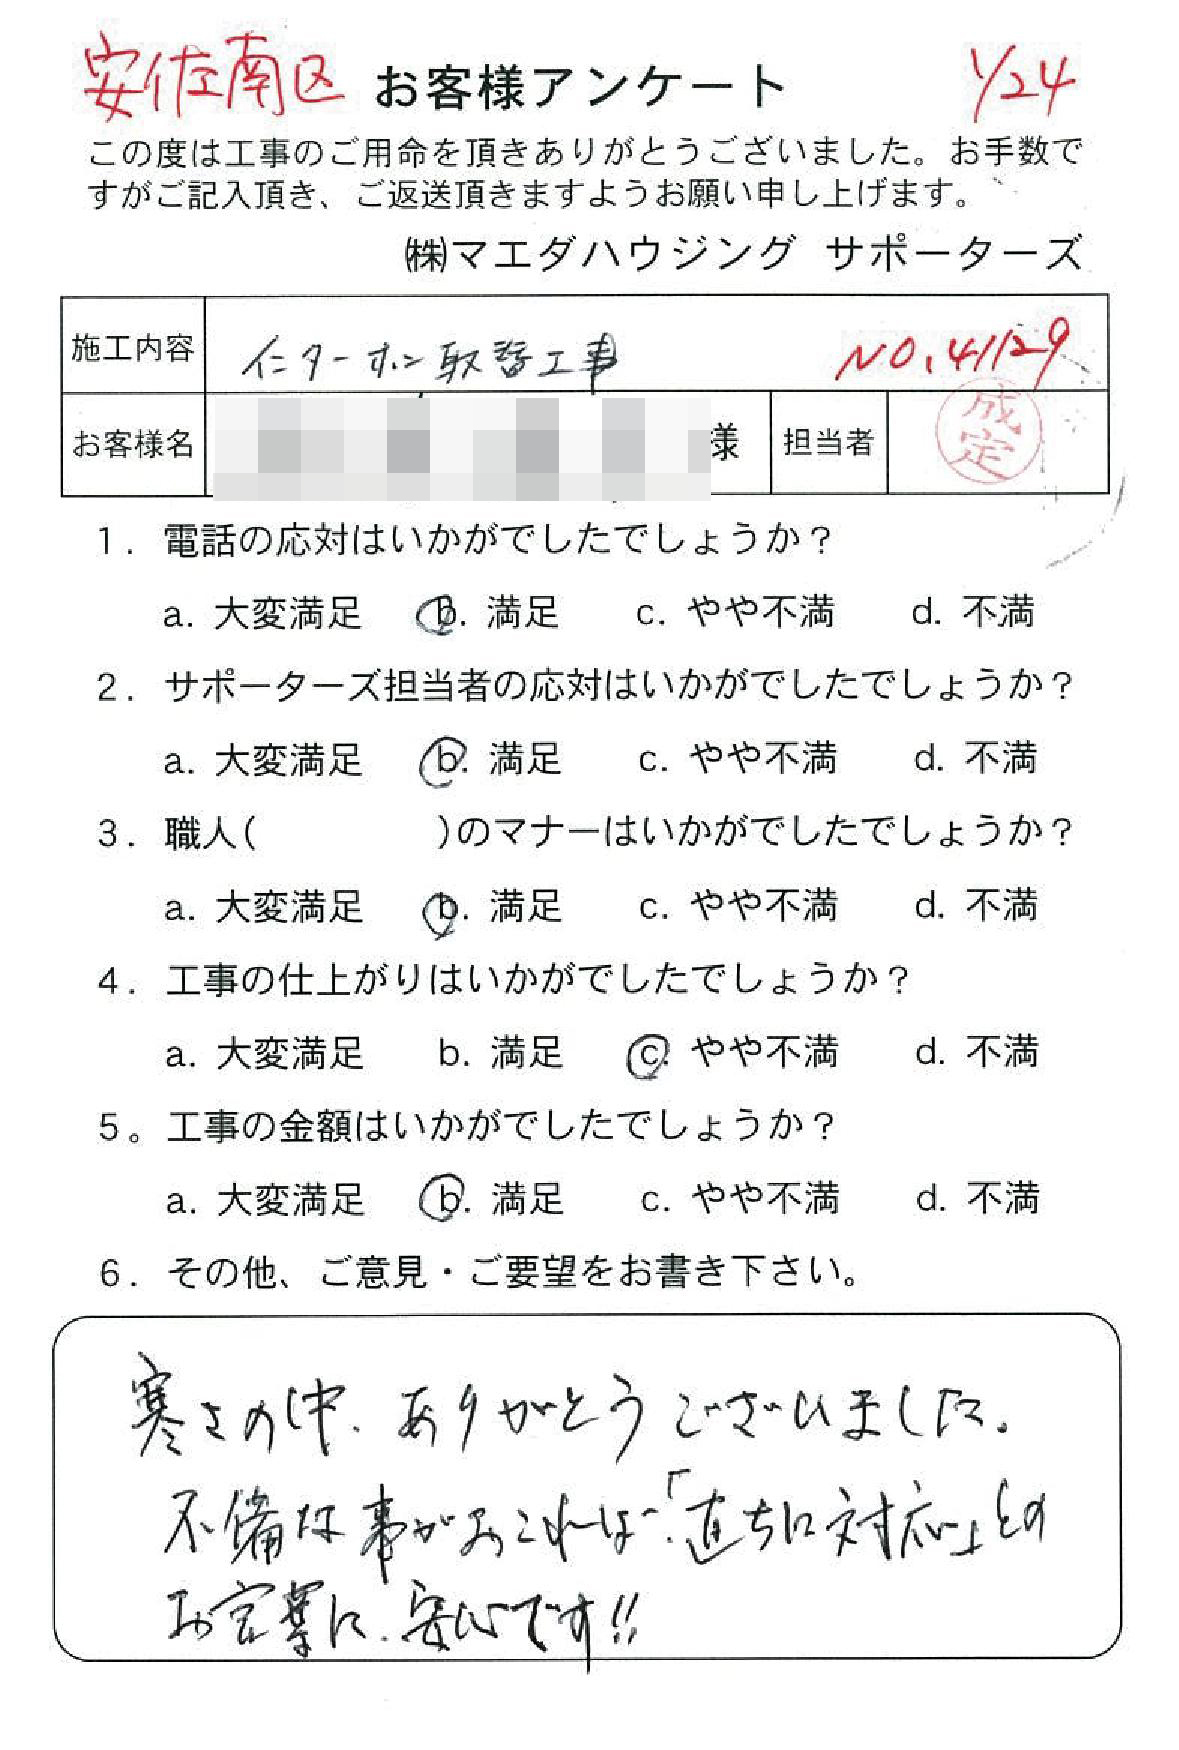 安佐南区 お客様アンケート 1/24
この度は工事のご用命を頂きありがとうございました。お手数で
すがご記入頂き、ご返送頂きますようお願い申し上げます。
㈱マエダハウジング サポーターズ
施工内容 インターホン取替工事 NO.41129
お客様名 様 担当者 成定
1. 電話の応対はいかがでしたでしょうか？
a. 大変満足 b. 満足 c. やや不満 d. 不満
2. サポーターズ担当者の応対はいかがでしたでしょうか？
a. 大変満足 b. 満足 c. やや不満 d. 不満
3. 職人( )のマナーはいかがでしたでしょうか？
a. 大変満足 b. 満足 c. やや不満 d. 不満
4. 工事の仕上がりはいかがでしたでしょうか？
a. 大変満足 b. 満足 c. やや不満 d. 不満
5。工事の金額はいかがでしたでしょうか？
a. 大変満足 b. 満足 c. やや不満 d. 不満
6. その他、ご意見・ご要望をお書き下さい。
寒さの中、ありがとうございました。
不備な事がおこれば「直ちに対応」との
お言葉に、安心です!!